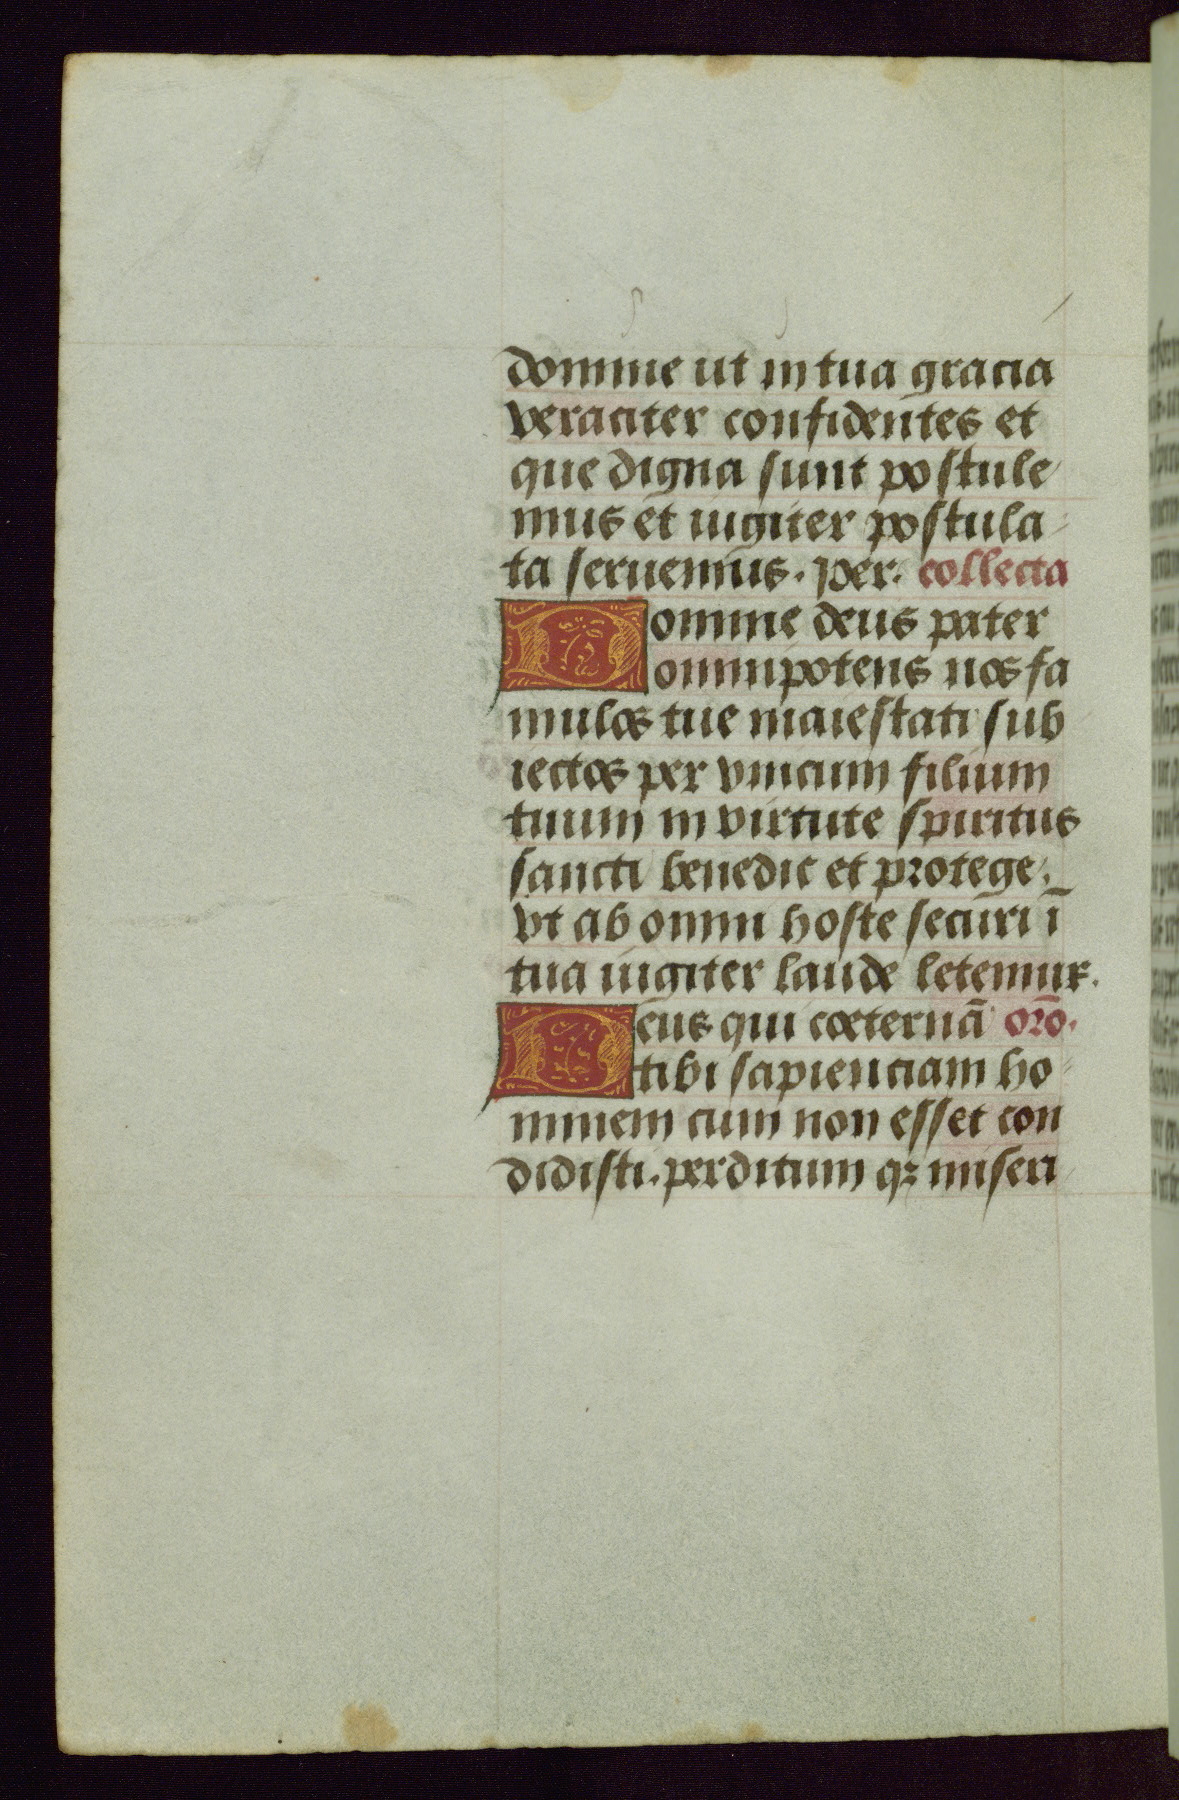 domine ut in tua gracia
veraciter confidentes et
que digna sunt postule
mus et iugiter postula
ta seruemus. per. collecta
Domine deus pater
omnipotens nos fa
mulos tue maiestati sub
iectos per vnicum filium
tuum in virtute spiritus
sancti benedic et protege.
vt ab omni hoste securi ī
tua iugiter laude letemur.
Deus qui coeternā orō.
tibi sapienciam ho
minem cum non esset con
didisti. perditum qȝ miseri